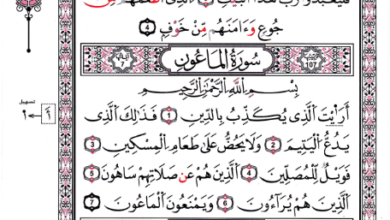 فَلْيَعْبُدُوا۟ رَبَّ هَٰذَا ٱلْبَيْتِ ٣ ٱلَّذِىٓ أَطْعَمَهُم مِّن
جُوعٍ وَءَامَنَهُم مِّنْ خَوْفٍ ٤
سُورَةُ الْمَاعُونِ
بِسْمِ ٱللَّهِ ٱلرَّحْمَٰنِ ٱلرَّحِيمِ
أَرَءَيْتَ ٱلَّذِى يُكَذِّبُ بِٱلدِّينِ ١ فَذَٰلِكَ ٱلَّذِى
تسهيل
يَدُعُّ ٱلْيَتِيمَ ٢ وَلَا يَحُضُّ عَلَىٰ طَعَامِ ٱلْمِسْكِينِ ٣
فَوَيْلٌ لِّلْمُصَلِّينَ ٤ ٱلَّذِينَ هُمْ عَن صَلَاتِهِمْ سَاهُونَ ٥
ٱلَّذِينَ هُمْ يُرَآءُونَ ٦ وَيَمْنَعُونَ ٱلْمَاعُونَ ٧